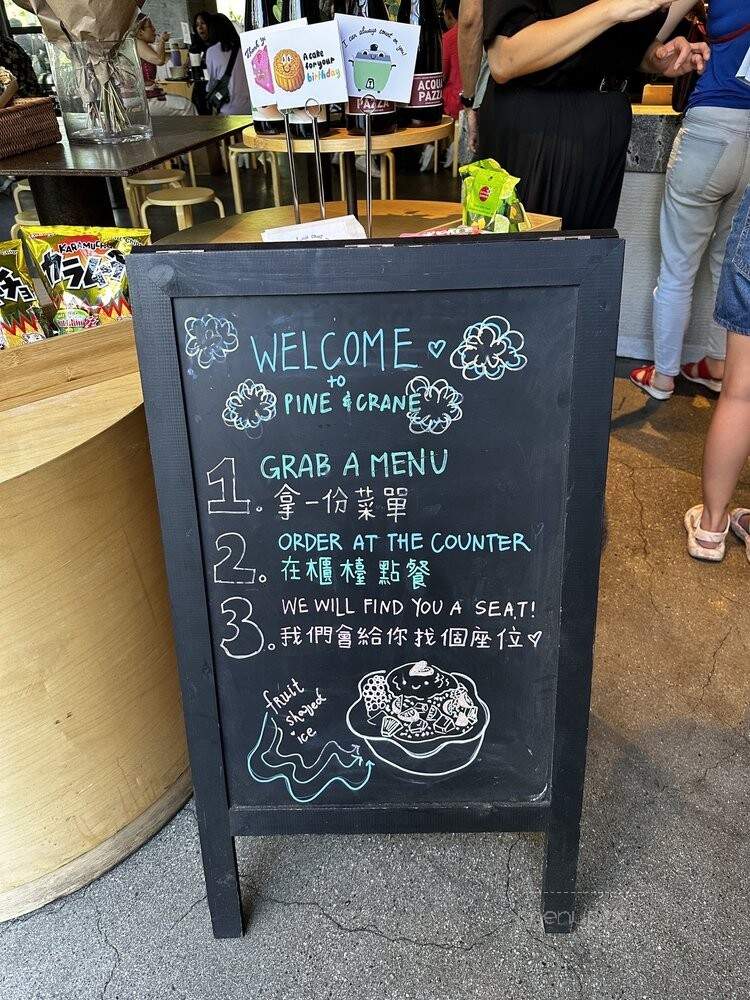 Thank you
A cake
for your
birthday
I can always count on you!
ACQUA
PAZZA
PAZZA
KARAMUCHO
WELCOME ♡
to
PINE & CRANE
1. GRAB A MENU
拿一份菜單
2. ORDER AT THE COUNTER
在櫃檯點餐
3. WE WILL FIND YOU A SEAT!
我們會給你找個座位♡
fruit
shaved
ice